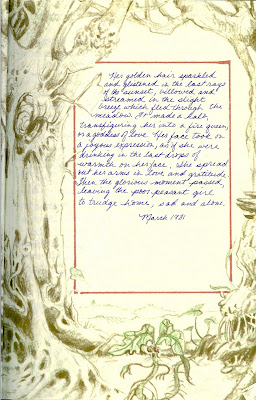 Her golden hair sparkled
and glistened in the last rays
of the sunset, billowed and
streamed in the slight
breeze which fled through the
meadow. It made a halo,
transfiguring her into a fire queen,
or a goddess of love. Her face took on
a joyous expression, as if she were
drinking in the last drops of
warmth on her face. She spread
out her arms in love and gratitude.
Then the glorious moment passed,
leaving the poor peasant girl
to trudge home, sad and alone.
March 1981